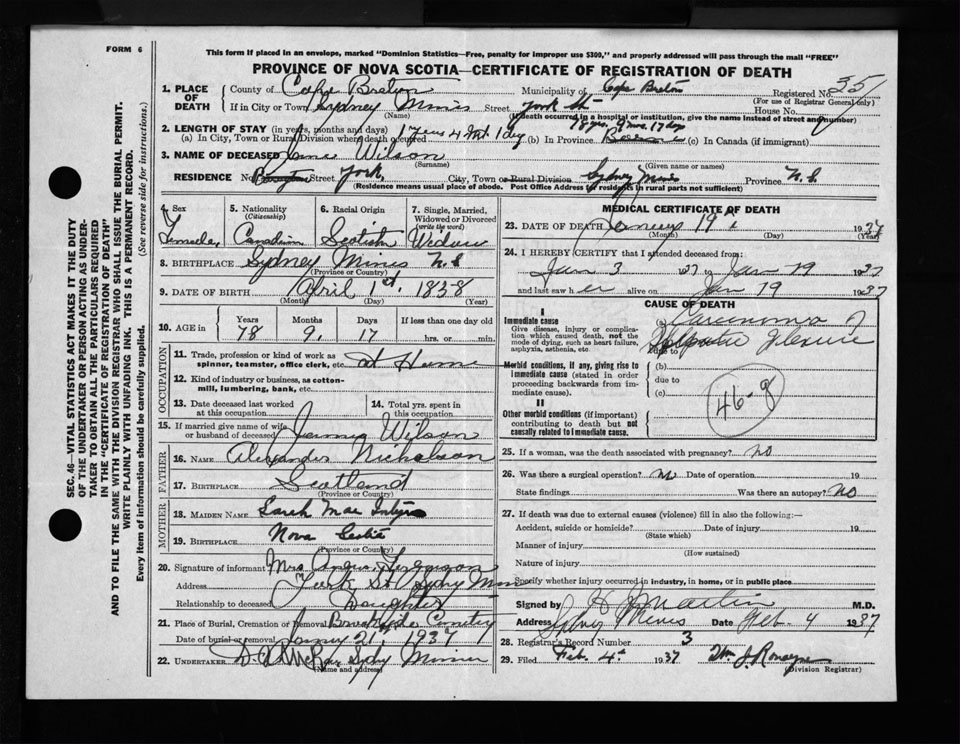 FORM 6
This form if placed in an envelope, marked "Dominion Statistics—Free, penalty for improper use $300," and properly addressed will pass through the mail "FREE"
PROVINCE OF NOVA SCOTIA—CERTIFICATE OF REGISTRATION OF DEATH
SEC. 46—VITAL STATISTICS ACT MAKES IT THE DUTY
OF THE UNDERTAKER OR PERSON ACTING AS UNDER-
TAKER TO OBTAIN ALL THE PARTICULARS REQUIRED
IN THE "CERTIFICATE OF REGISTRATION OF DEATH"
AND TO FILE THE SAME WITH THE DIVISION REGISTRAR WHO SHALL ISSUE THE BURIAL PERMIT.
WRITE PLAINLY WITH UNFADING INK. THIS IS A PERMANENT RECORD.
Every item of information should be carefully supplied. (See reverse side for instructions.)
1. PLACE OF DEATH
County of Cape Breton Municipality of Cape Breton Registered No. 35
(For use of Registrar General only)
If in City or Town Sydney Mines Street York St House No.
(Name) (If death occurred in a hospital or institution, give the name instead of street and number)
2. LENGTH OF STAY (in years, months and days)
78 yrs. 9 mos. 17 day
(a) In City, Town or Rural Division where death occurred 1 year 4 mos 1 day (b) In Province (c) In Canada (if immigrant)
3. NAME OF DECEASED Wilson
(Surname) (Given name or names)
RESIDENCE No. Street York, City, Town or Rural Division Sydney Mines Province N. S.
(Residence means usual place of abode. Post Office Address for residents in rural parts not sufficient)
4. Sex
Female
5. Nationality
(Citizenship)
Canadian
6. Racial Origin
Scotish
7. Single, Married,
Widowed or Divorced
(write the word)
Widow
8. BIRTHPLACE Sydney Mines N. S
(Province or Country)
9. DATE OF BIRTH April 1st. 1838
(Month) (Day) (Year)
10. AGE in
Years Months Days If less than one day old
78 9. 17 hrs. or min.
OCCUPATION
11. Trade, profession or kind of work as
spinner, teamster, office clerk, etc. At Home
12. Kind of industry or business, as cotton-
mill, lumbering, bank, etc.
13. Date deceased last worked
at this occupation
14. Total yrs. spent in
this occupation
15. If married give name of wife
or husband of deceased Wilson
FATHER
16. NAME Alexander Nicholson
17. BIRTHPLACE Scotland
(Province or Country)
MOTHER
18. MAIDEN NAME Sarah Mac Intyre
19. BIRTHPLACE Nova Scotia
(Province or Country)
20. Signature of informant Mrs Angus Ferguson
Address York St Sydney Mines
Relationship to deceased Daughter
21. Place of Burial, Cremation or Removal Brookside Cemetry
Date of burial or removal 21st 1937
22. UNDERTAKER
(Name and address)
MEDICAL CERTIFICATE OF DEATH
23. DATE OF DEATH January 19th 1937
(Month) (Day) (Year)
24. I HEREBY CERTIFY that I attended deceased from:
Jan 3 1937 Jan 19 1937
and last saw her alive on Jan 19 1937
CAUSE OF DEATH
I
Immediate cause
Give disease, injury or complica-
tion which caused death, not the
mode of dying, such as heart failure,
asphyxia, asthenia, etc.
(a) Carcinoma of
Flexure
due to
Morbid conditions, if any, giving rise to
immediate cause (stated in order
proceeding backwards from im-
mediate cause).
(b)
due to
(c)
46-g
II
Other morbid conditions (if important)
contributing to death but not
causally related to immediate cause.
25. If a woman, was the death associated with pregnancy? no
26. Was there a surgical operation? no Date of operation 19
State findings Was there an autopsy? no
27. If death was due to external causes (violence) fill in also the following:—
Accident, suicide or homicide? Date of injury 19
(State which)
Manner of injury
(How sustained)
Nature of injury
Specify whether injury occurred in industry, in home, or in public place
Signed by Martin M.D.
Address Sydney Mines Date Feb. 4 1937
28. Registrar's Record Number 3
29. Filed Feb. 4th 1937 Wm J. Ronayne
(Division Registrar)